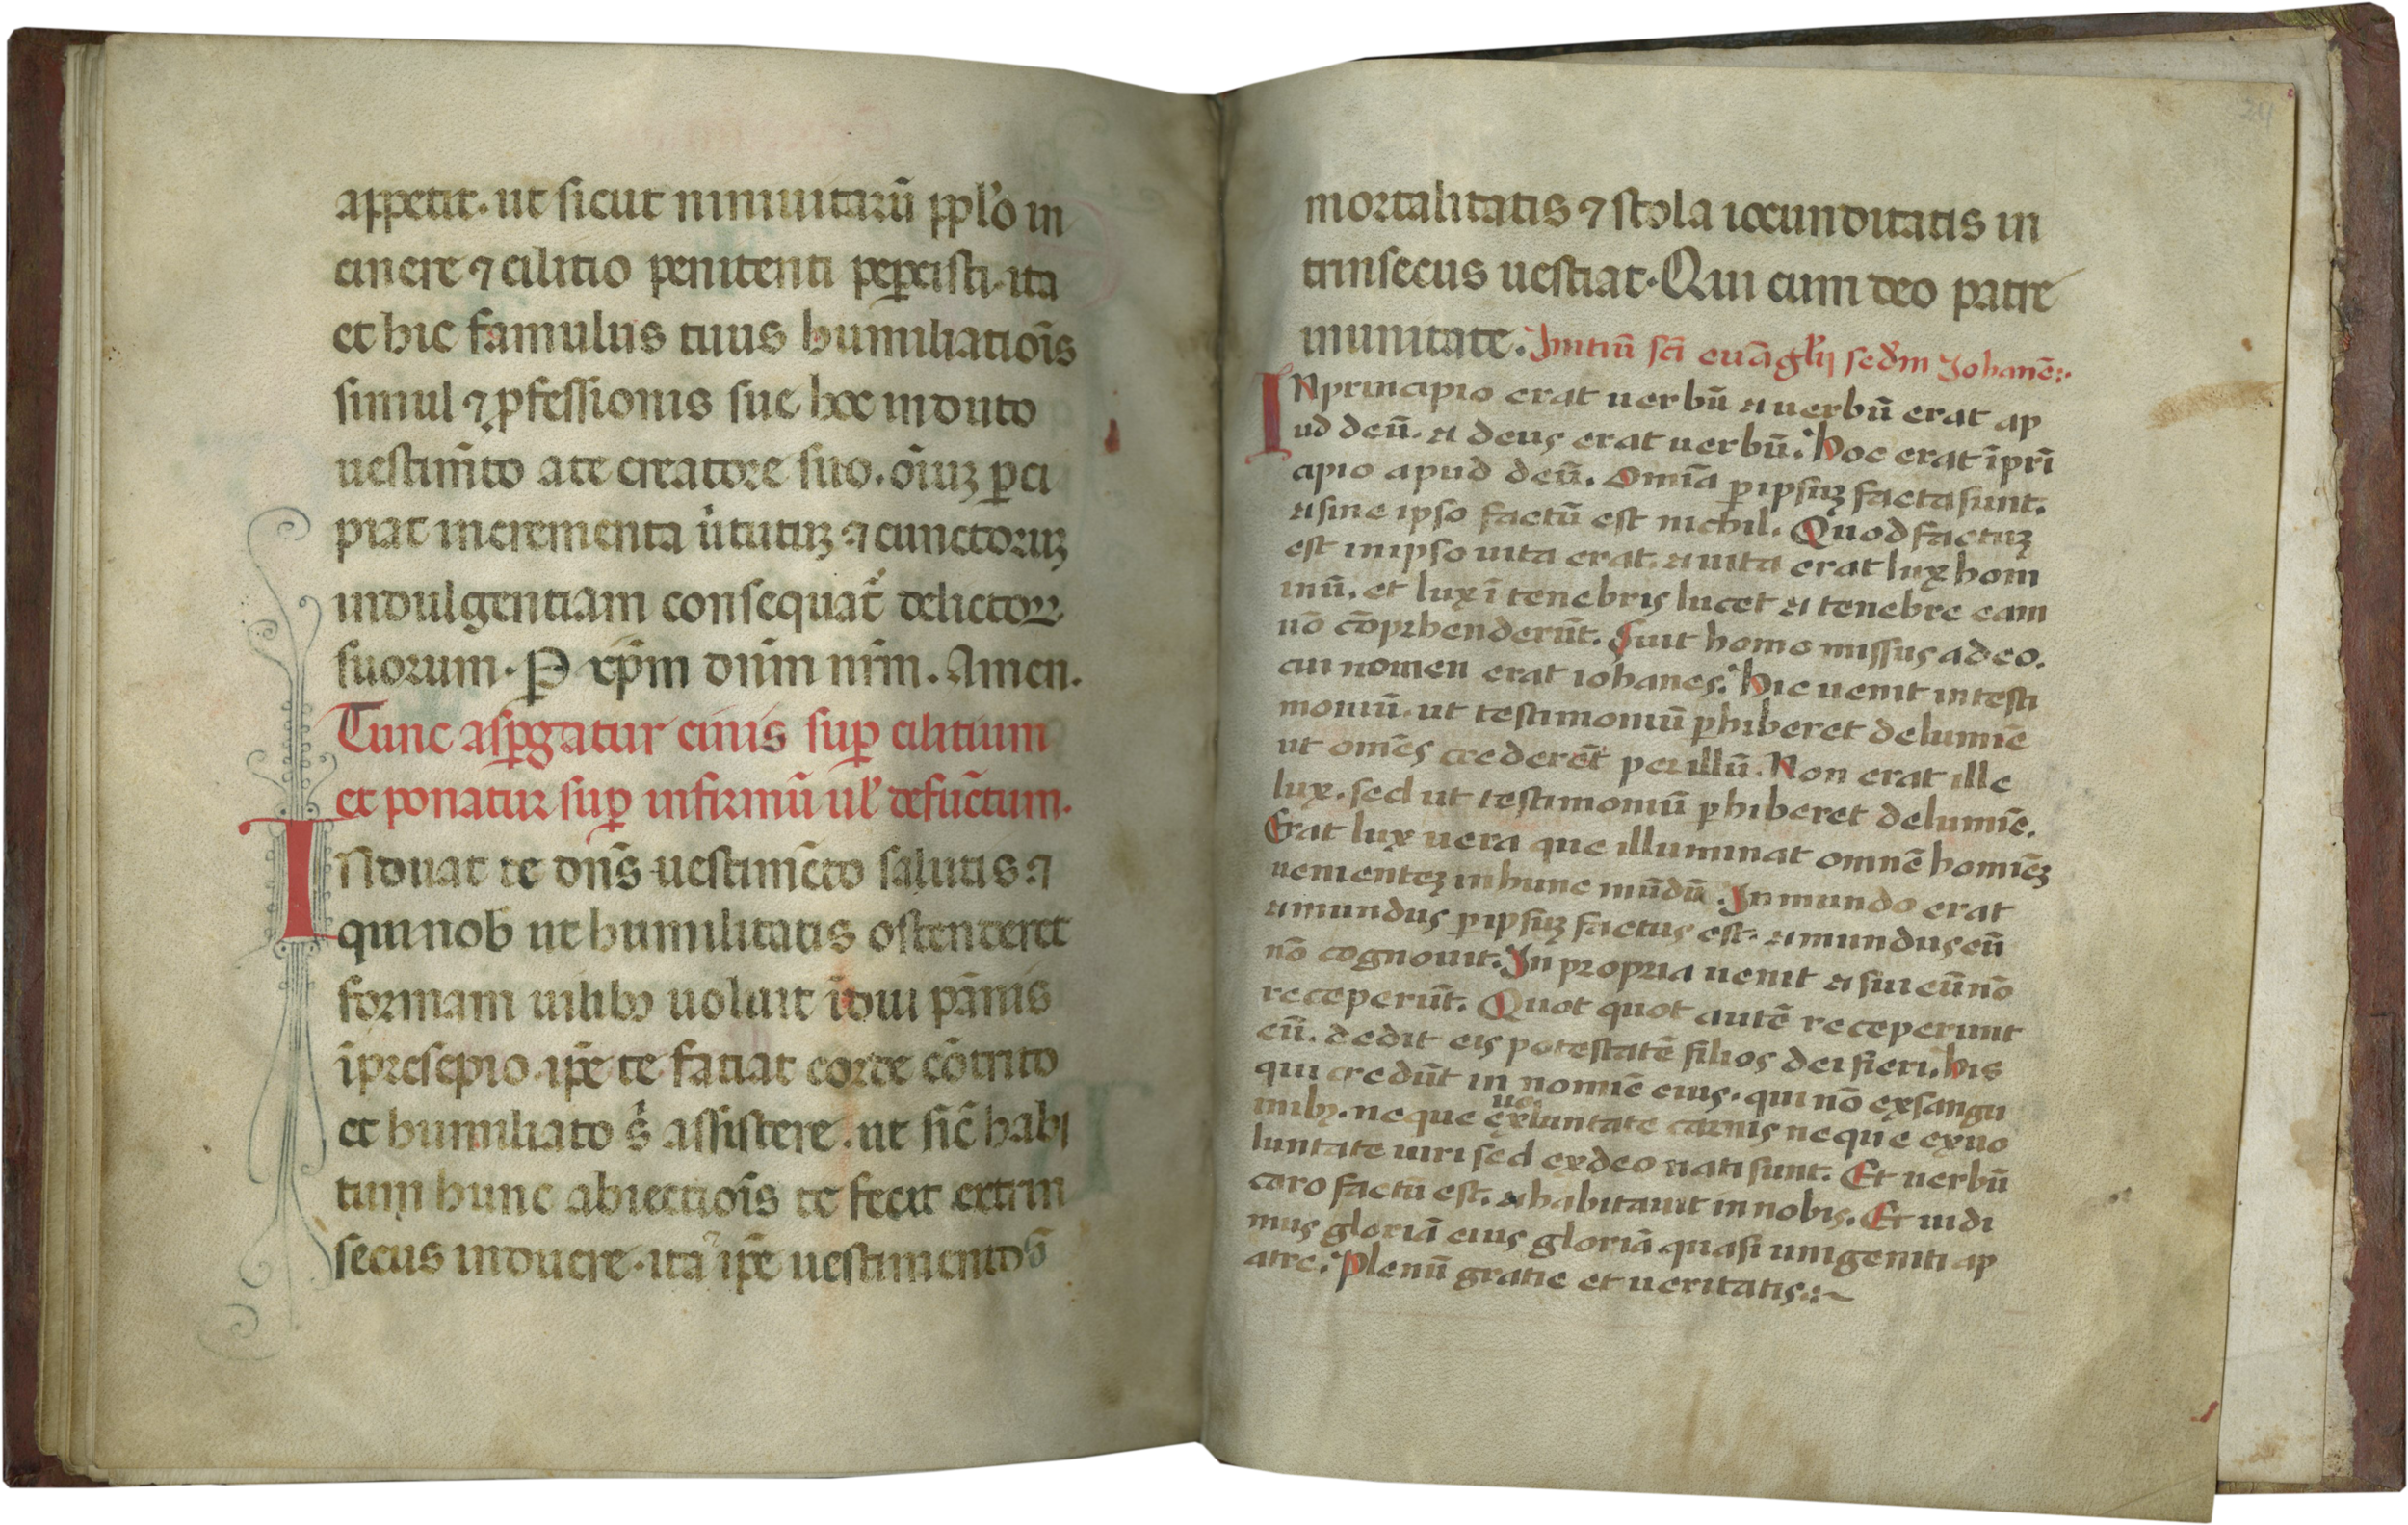 appetit. ut sicut niniuitarū ppl'o in
cinere ⁊ cilitio penitenti peꝑcisti. ita
et hic famulus tuus humiliatiōis
simul ⁊ ꝓfessionis sue hoc induto
uestim̄to a te creatore suo. oīuꝫ ꝑci
piat incrementa uͥtutuꝫ ⁊ cunctoruꝫ
indulgentiam consequat᷑ delictoꝝ
suorum. P xp̄m dn̄m nr̄m. Amen.
Tunc asꝑgatur cinis suꝑ cilitium
et ponatur suꝑ infirmū ul' defūctum.
INduat te dn̄s uestimēto salutis ⁊
qui nob ut humilitatis ostenderet
formam uilibꝰ uoluit īdui pānis
ī presepio. ip̄e te fatiat corde cōtrito
et humiliato s̉ assistere. ut sic̄ habi
tum hunc abiectiōis te fecit extrin
secus induere. ita ip̄e uestimento
mortalitatis ⁊ stola iocunditatis in
trinsecus uestiat. Qui cum deo patre
in unitate. Initiū sc̄i euāglij sed'm Johanē:.
IN principio erat uerbū ⁊ uerbū erat ap
ud deū. ⁊ deus erat uerbū. hoc erat ī prī
cipio apud deū. Omīa ꝑ ipsuꝫ facta sunt.
⁊ sine ipso factū est nichil. Quod factuꝫ
est in ipso uita erat. ⁊ uita erat lux hom
inū. et lux ī tenebris lucet ⁊ tenebre eam
nō cōprhenderūt. Fuit homo missus a deo.
cui nomen erat iohanes. hic uenit in testi
moniū. ut testimoniū ꝑhiberet de lumīe
ut omēs crederēt per illū. Non erat ille
lux. sed ut testimoniū ꝑhiberet de lumīe.
Erat lux uera que illuminat omnē homīēꝫ
uenienteꝫ in hunc mūdū. In mundo erat
⁊ mundus ꝑ ipsuꝫ factus est. ⁊ mundus eū
nō cognouit. In propria uenit ⁊ sui eū nō
receperūt. Quot quot autē receperunt
eū. dedit eis potestatē filios dei fieri. his
qui credūt in nomīe eius. qui nō ex sangu
inibꝰ. neque ex uoluntate carnis neque ex uo
luntate uiri sed ex deo nati sunt. Et uerbū
caro factū est. ⁊ habitauit in nobis. Et uidi
mus gloriā eius gloriā quasi unigeniti a p
atre. Plenū gratie et ueritatis:~